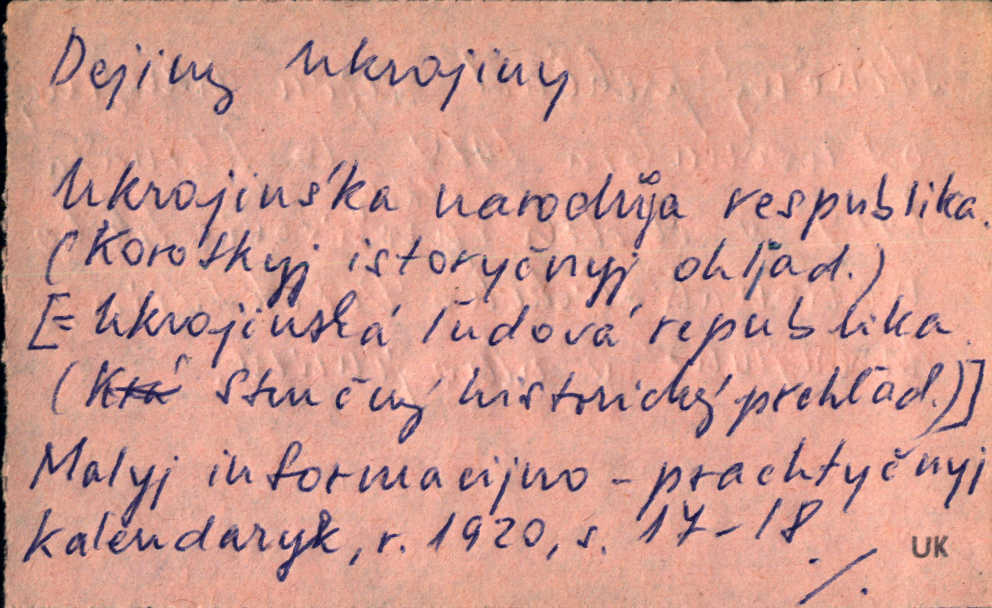 Dejiny Ukrajiny
Ukrajinśka narodnja respublika.
(Korotkyj istoryčnyj ohljad.)
[= Ukrajinská ľudová republika.
(Krá Stručný historický prehľad.)]
Malyj informacijno-prachtyčnyj
kalendaryk, r. 1920, s. 17-18
./.
UK